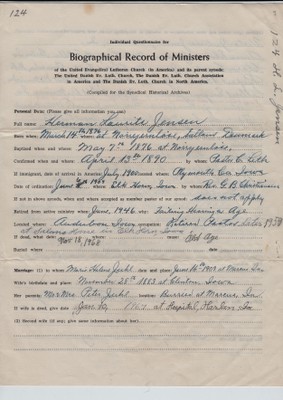 124
124 H. L. Jensen
Individual Questionnaire for
Biographical Record of Ministers
of the United Evangelical Lutheran Church (in America) and its parent synods:
The United Danish Ev. Luth. Church, The Danish Ev. Luth. Church Association
in America and The Danish Ev. Luth. Church in North America.
(Compiled for the Synodical Historical Archives)
Personal Data: (Please give all information you can)
Full name: Herman Lauritz Jensen
Date when: March 14th 1876 at Nørreyenlöse, Denmark
Baptized when and where: May 7th 1876 at Nørreyenlöse,
Confirmed when and where: April 13th 1890 by whom:
If immigrant, date of arrival in America: July 1900 located where: Plymouth Co. Iowa
Date of ordination: June 1909 where: Elk Horn, Iowa by whom: Rev. G. B. Christiansen
If not in above synods, when and where accepted as member pastor of our synod: does not apply
Retired from active ministry when: June, 1946 why: Failing Hearing & Age
Located where: Audubon Iowa, occupation: Retired Pastor, later 1958
at Salems Home in Elk Horn, Iowa
Died when: Nov. 18, 1968 of what Old Age
Buried where date
Marriage: (1) to whom Marie Helene Juhl date and place June 16th 1909 at Marcus, Ia.
Wife's birthdate and place November 28th 1883 at Clinton, Iowa
Her parents: Mr & Mrs Peter Juhl location: Buried at Marcus, Ia.
If wife is dead, give date Jan. at Hospital, Harlan, Ia
(2) Second wife (if any; give same information about her)